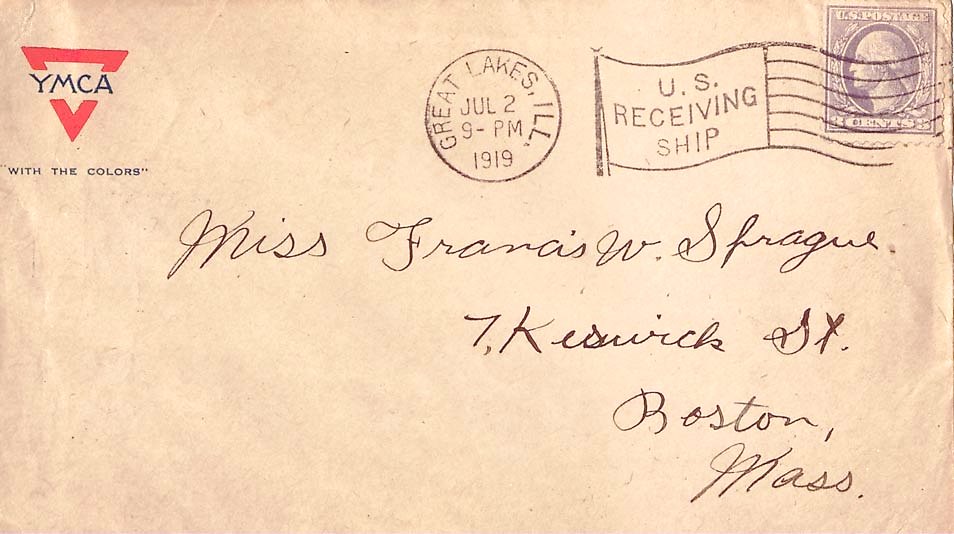 YMCA
"WITH THE COLORS"
GREAT LAKES, ILL.
JUL 2
9- PM
1919
U.S.
RECEIVING
SHIP
U.S. POSTAGE
3 CENTS 3
Miss Francis W. Sprague
7, Keswick St.
Boston,
Mass.